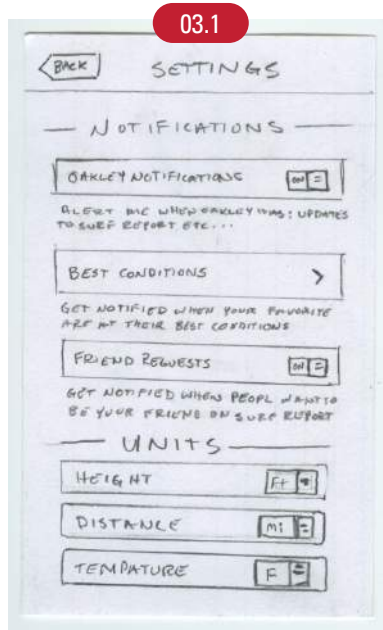 03.1
BACK SETTINGS
NOTIFICATIONS
OAKLEY NOTIFICATIONS ON
ALERT ME WHEN OAKLEY HAS: UPDATES
TO SURF REPORT ETC...
BEST CONDITIONS >
GET NOTIFIED WHEN YOUR FAVORITE
ARE AT THEIR BEST CONDITIONS
FRIEND REQUESTS ON
GET NOTIFIED WHEN PEOPL WANT TO
BE YOUR FRIEND ON SURF REPORT
UNITS
HEIGHT Ft
DISTANCE mi
TEMPATURE F